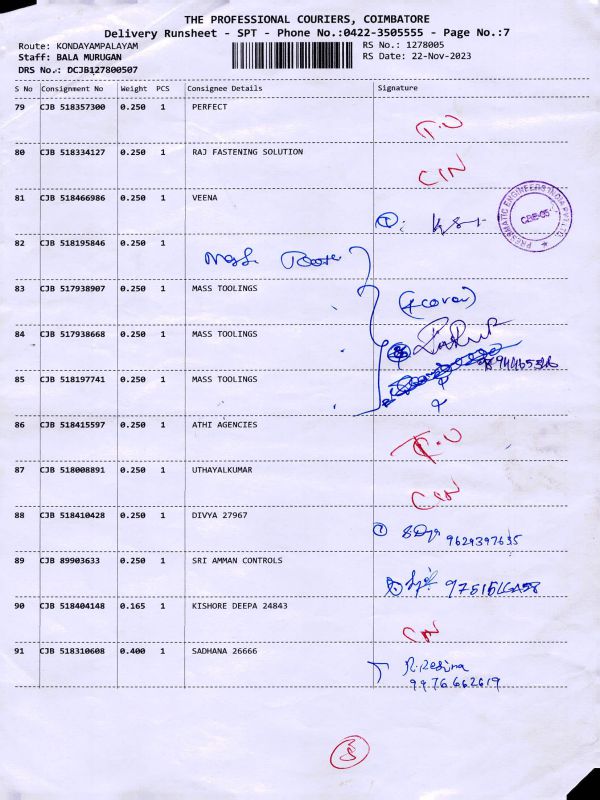 THE PROFESSIONAL COURIERS, COIMBATORE
Delivery Runsheet - SPT - Phone No.:0422-3505555 - Page No.:7
Route: KONDAYAMPALAYAM
RS No.: 1278005
Staff: BALA MURUGAN
RS Date: 22-Nov-2023
DRS No.: DCJB127800507
S No Consignment No Weight PCS Consignee Details Signature
79 CJB 518357300 0.250 1 PERFECT
T.O
80 CJB 518334127 0.250 1 RAJ FASTENING SOLUTION
CIN
81 CJB 518466986 0.250 1 VEENA
PRESMATIC ENGINEERS INDIA PVT LTD.
CBE-05
82 CJB 518195846 0.250 1
83 CJB 517938907 0.250 1 MASS TOOLINGS
(4 cover)
84 CJB 517938668 0.250 1 MASS TOOLINGS
85 CJB 518197741 0.250 1 MASS TOOLINGS
86 CJB 518415597 0.250 1 ATHI AGENCIES
T.O
87 CJB 518008891 0.250 1 UTHAYALKUMAR
CIN
88 CJB 518410428 0.250 1 DIVYA 27967
9629397635
89 CJB 89903633 0.250 1 SRI AMMAN CONTROLS
90 CJB 518404148 0.165 1 KISHORE DEEPA 24843
CIN
91 CJB 518310608 0.400 1 SADHANA 26666
R.Regina
9976662619